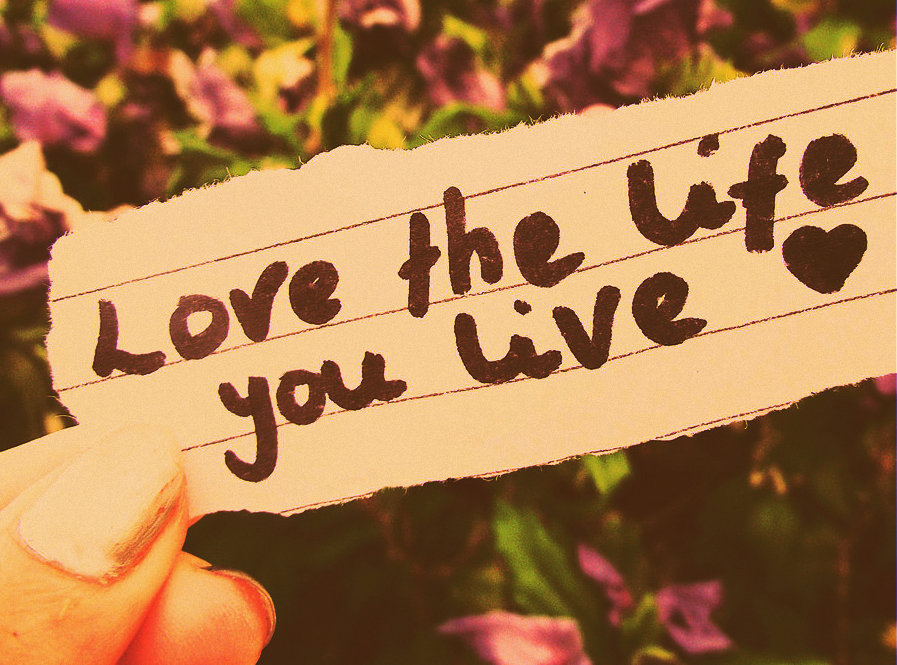 Love the life
you live ♥